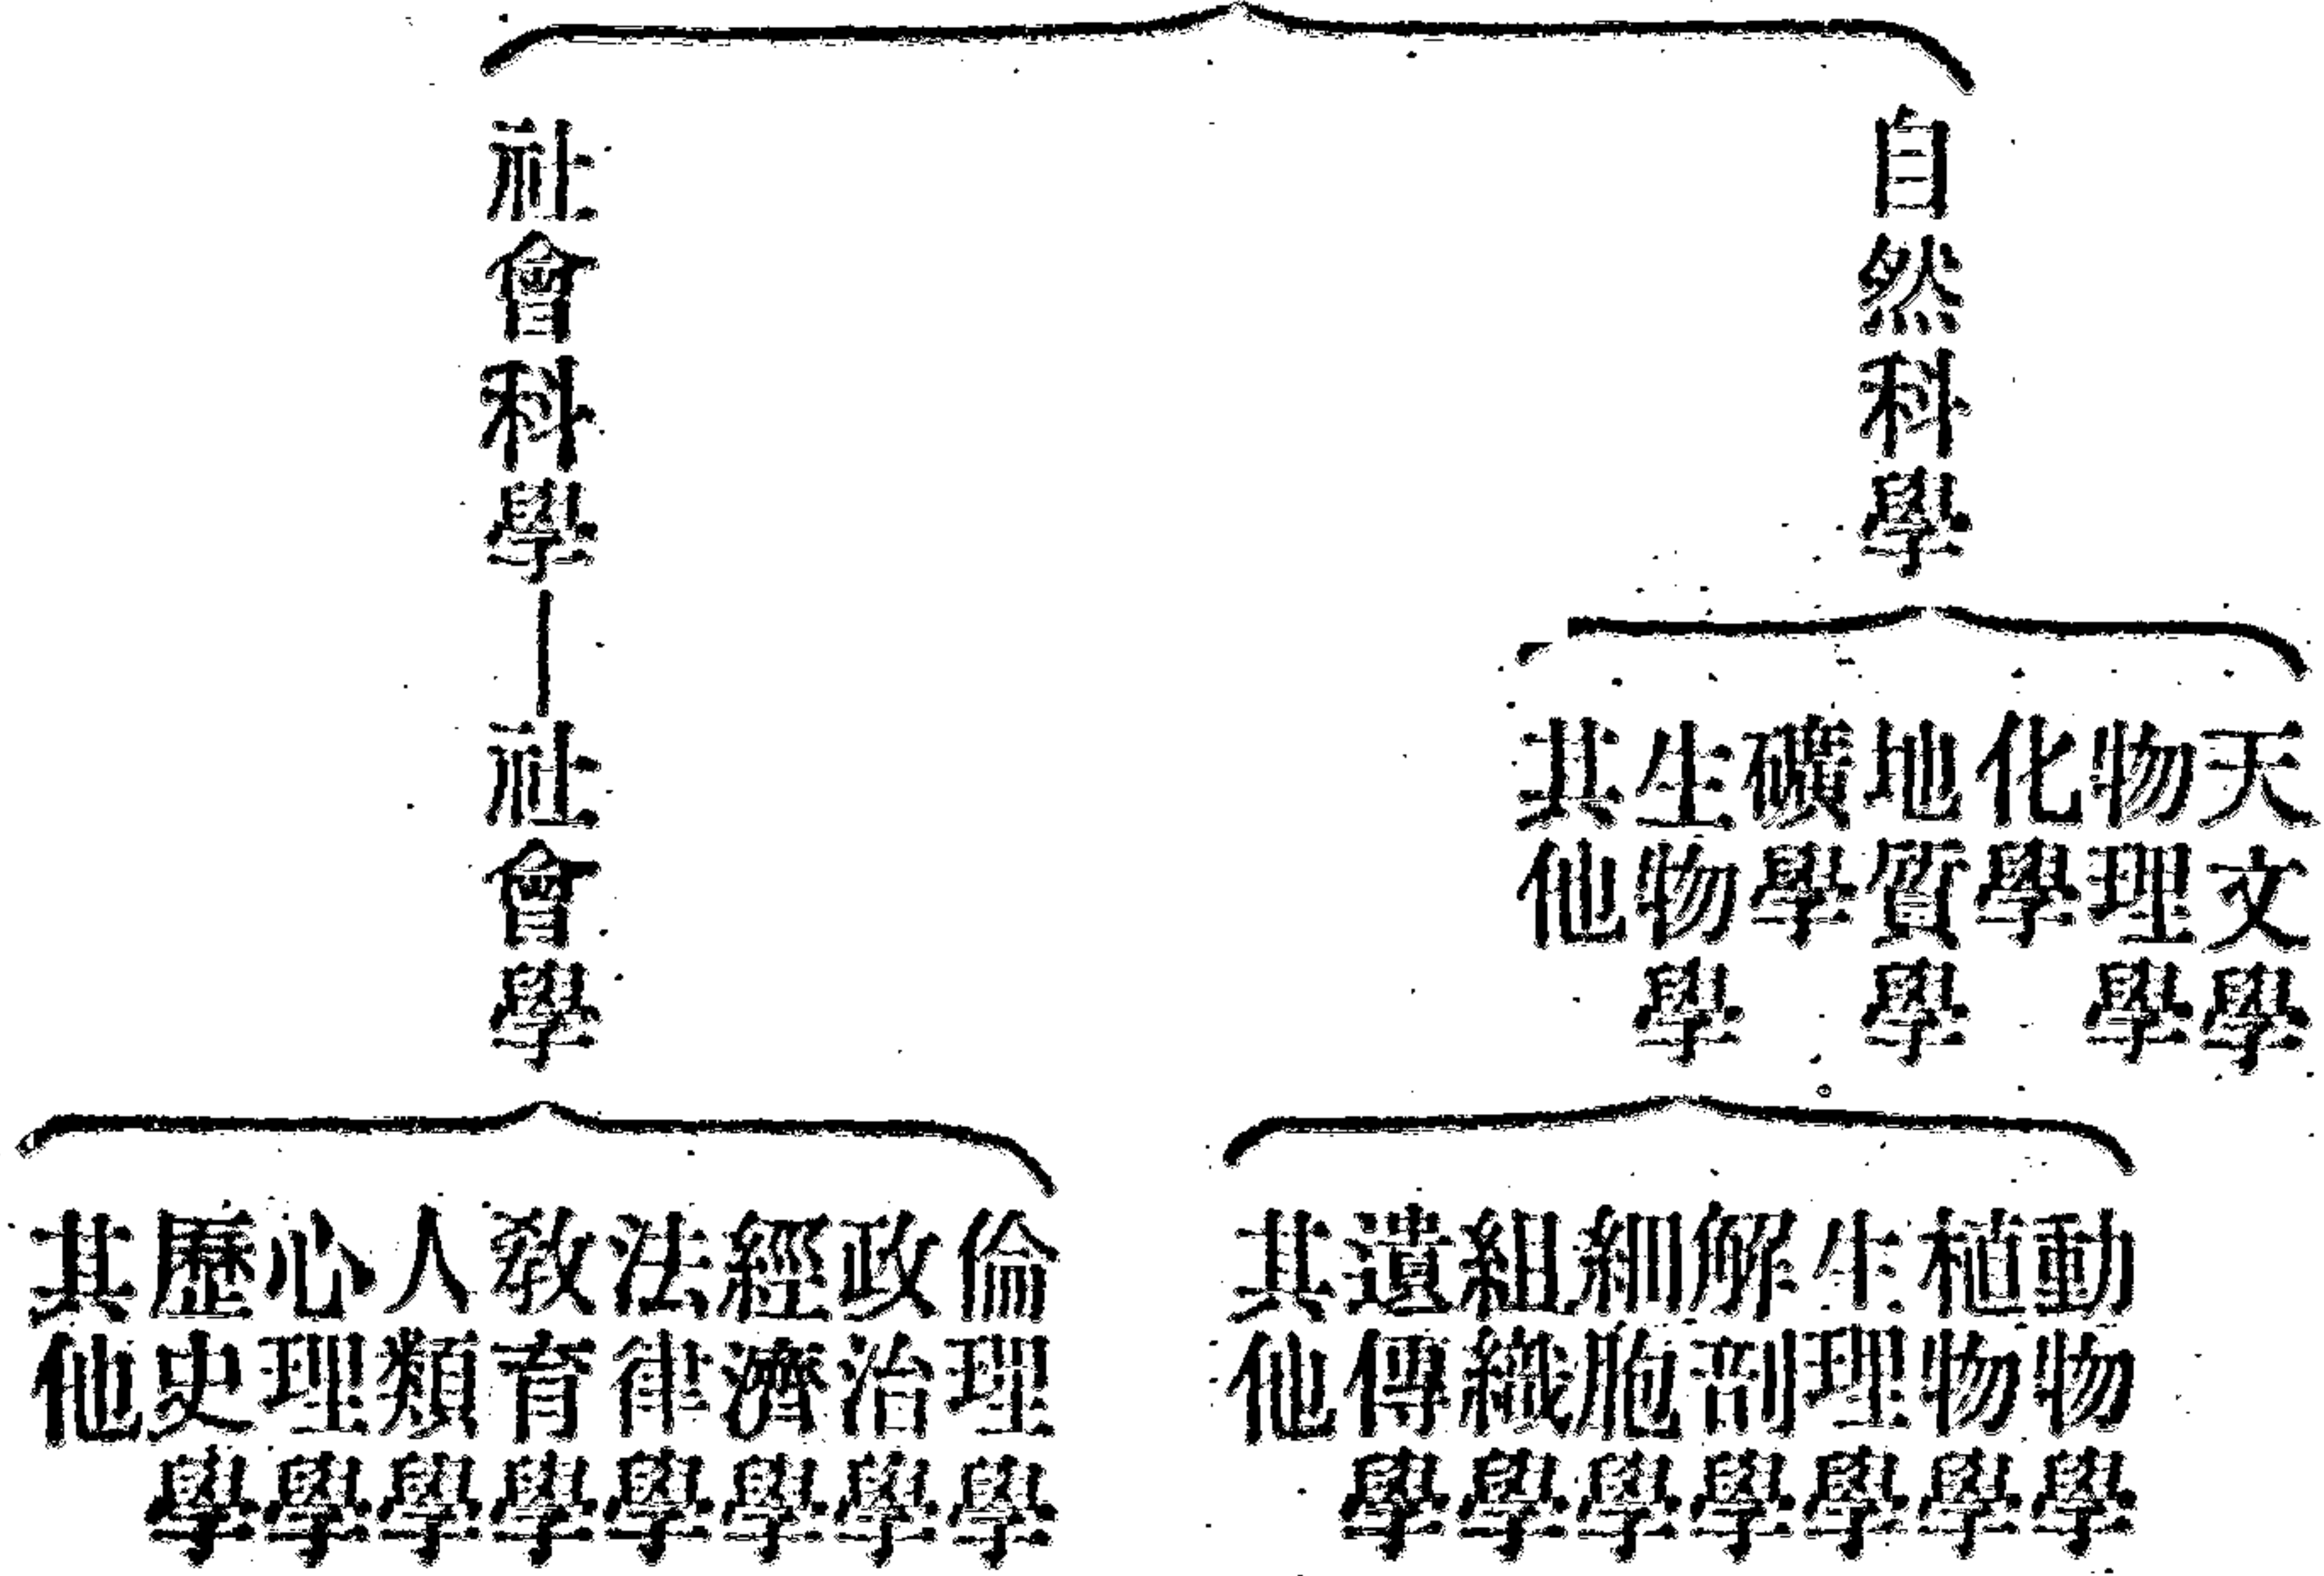 自然科學
天文學
物理學
化學
地質學
礦學
生物學
其他
動物學
植物學
生理學
解剖學
細胞學
組織學
遺傳學
其他
社會科學
社會學
倫理學
政治學
經濟學
法律學
教育學
人類學
心理學
歷史學
其他